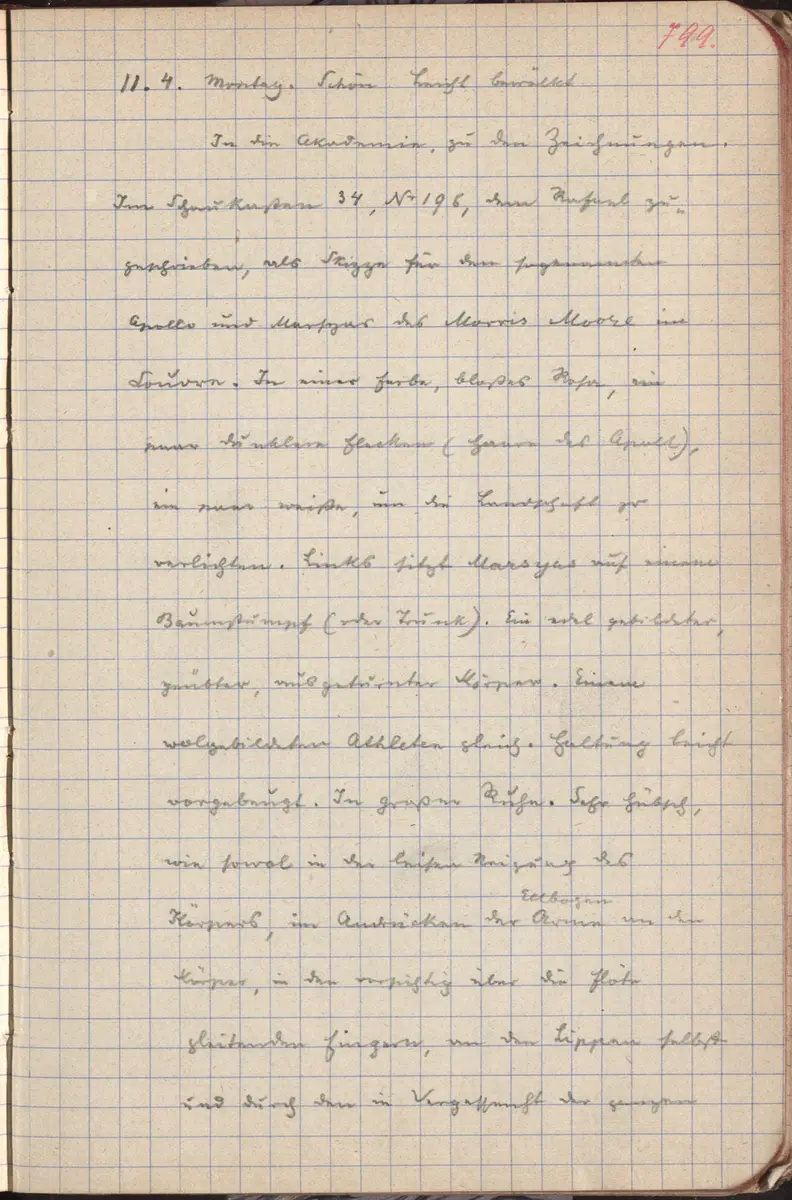 799.
11. 4. Montag. Schön leicht bewölkt
In die Akademie, zu den Zeichnungen.
Im Schaukasten 34, Nr 196, dem Rafael zu-
geschrieben, als Skizze für den sogenannten
Apollo und Marsyas des Morris Moore im
Louvre. In einer Farbe, blaßes Rosa, ein
paar dunklere Flecken (Haare des Apoll),
ein paar weiße, um die Landschaft zu
verlichten. Links sitzt Marsyas auf einem
Baumstumpf (oder Trunk). Ein edel gebildeter,
geübter, ausgeturnter Körper. Einem
wolgebildeten Athleten gleich. Haltung leicht
vorgebeugt. In großer Ruhe. Sehr hübsch,
wie sowol in der leisen Neigung des
Ellbogen
Körpers, im Andrücken der Arme an den
Körper, in den vorsichtig über die Flöte
gleitenden Fingern, an den Lippen selbst
und durch den in Vergessenheit der ganzen